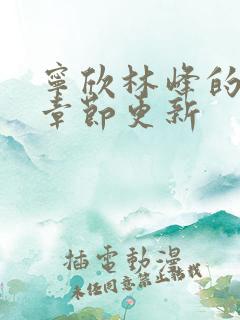 寧欣林峰的
章節更新
插電動漫
未经同意禁止转载